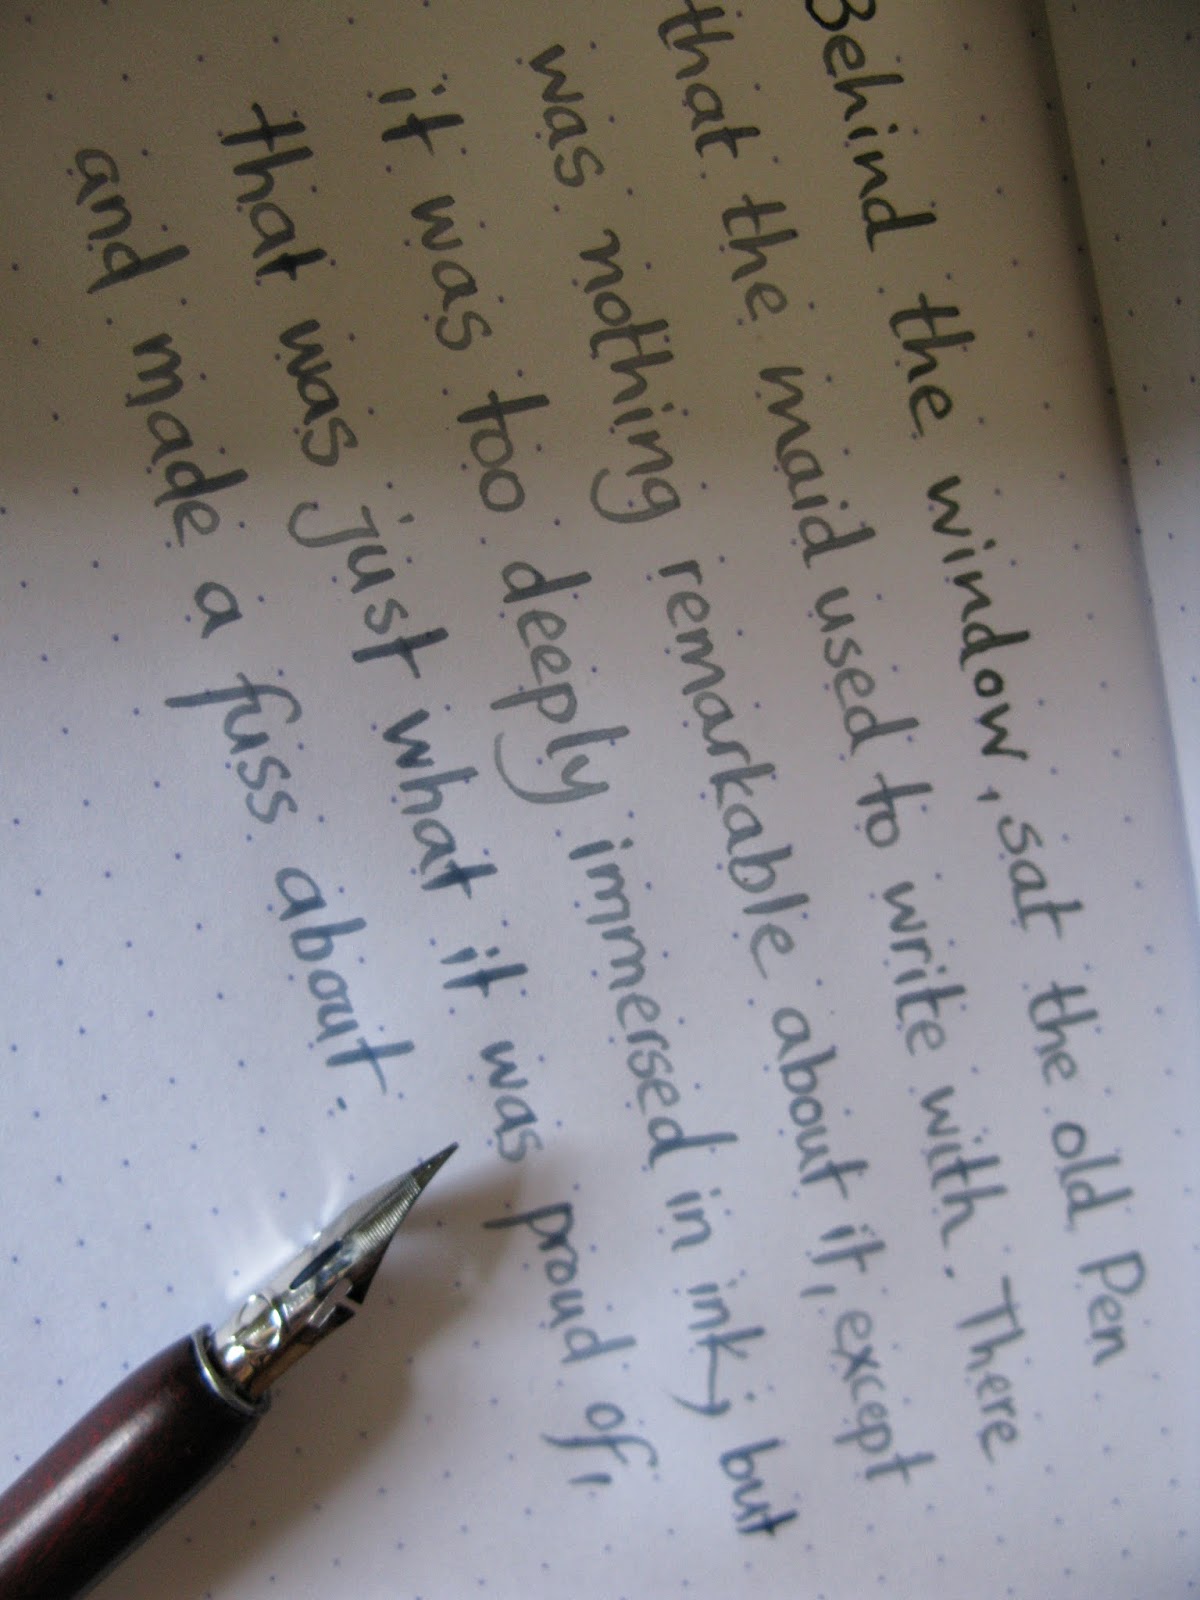 Behind the window, sat the old Pen
that the maid used to write with. There
was nothing remarkable about it, except
it was too deeply immersed in ink, but
that was just what it was proud of,
and made a fuss about.